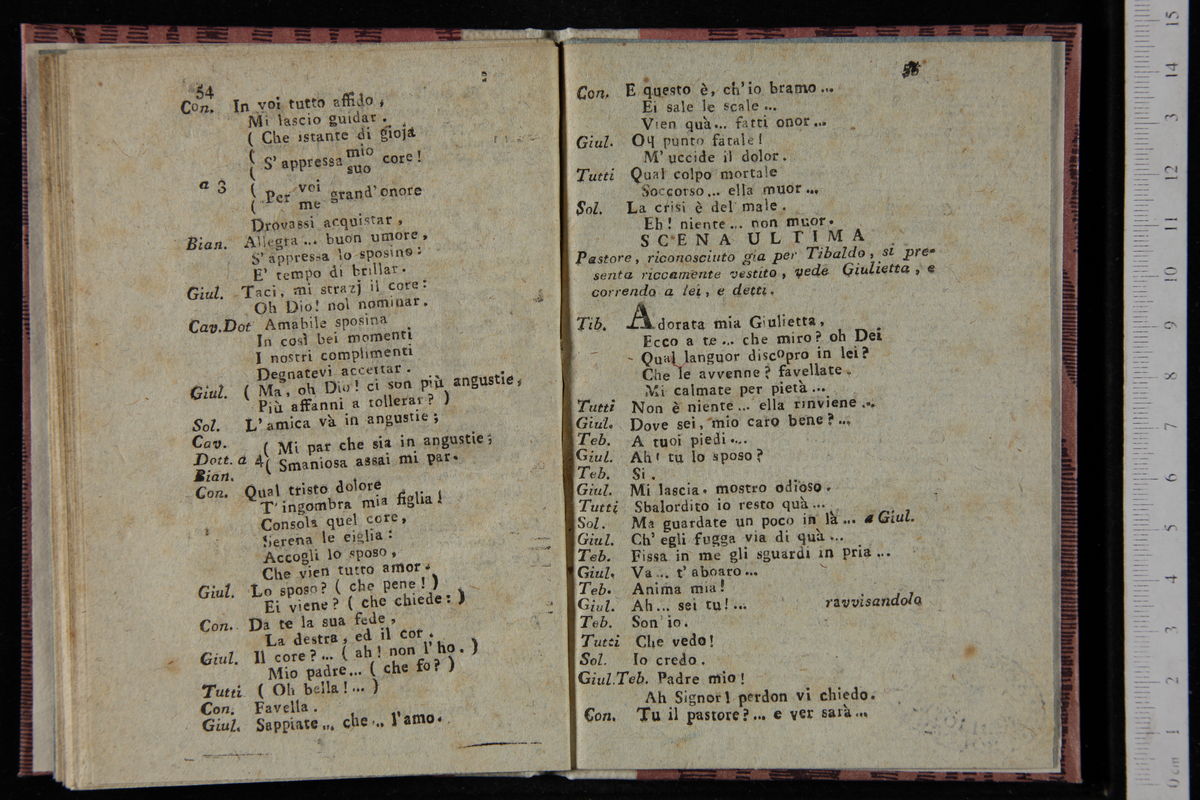 54
Con. In voi tutto affido,
Mi lascio guidar.
( Che istante di gioja
( S' appressa mio core!
suo
a 3 ( Per voi grand' onore
( me
Drovassi acquistar,
Bian. Allegra ... buon umore,
S' appressa lo sposino:
E' tempo di brillar.
Giul. Taci, mi strazj il core:
Oh Dio! nol nominar.
Cav.Dot Amabile sposina
In così bei momenti
I nostri complimenti
Degnatevi accettar.
Giul. ( Ma, oh Dio! ci son più angustie,
Più affanni a tollerar? )
Sol. L' amica và in angustie;
Cav. ( Mi par che sia in angustie;
Dott. a 4 ( Smaniosa assai mi par.
Bian.
Con. Qual tristo dolore
T' ingombra mia figlia!
Consola quel core,
Serena le ciglia:
Accogli lo sposo,
Che vien tutto amor.
Giul. Lo sposo? ( che pene! )
Ei viene? ( che chiede: )
Con. Da te la sua fede,
La destra, ed il cor.
Giul. Il core? ... ( ah! non l' ho. )
Mio padre... ( che fo? )
Tutti ( Oh bella! ... )
Con. Favella.
Giul. Sappiate ... che ... l'amo.
55
Con. E questo è, ch' io bramo ...
Ei sale le scale ...
Vien quà... fatti onor ...
Giul. Oq punto fatale!
M' uccide il dolor.
Tutti Qual colpo mortale
Soccorso ... ella muor ...
Sol. La crisi è del male.
Eh! niente ... non muor.
SCENA ULTIMA
Pastore, riconosciuto gia per Tibaldo, si pre-
senta riccamente vestito, vede Giulietta, e
correndo a lei, e detti.
Tib. Adorata mia Giulietta,
Ecco a te ... che miro? oh Dei
Qual languor discopro in lei?
Che le avvenne? favellate.
Mi calmate per pietà ...
Tutti Non è niente ... ella rinviene ...
Giul. Dove sei, mio caro bene? ...
Teb. A tuoi piedi ....
Giul. Ah! tu lo sposo?
Teb. Si.
Giul. Mi lascia. mostro odioso.
Tutti Sbalordito io resto quà ...
Sol. Ma guardate un poco in là ... a Giul.
Giul. Ch' egli fugga via di quà ...
Teb. Fissa in me gli sguardi in pria ...
Giul. Va ... t' aboaro ...
Teb. Anima mia!
Giul. Ah ... sei tu! ... ravvisandolo
Teb. Son io.
Tutti Che vedo!
Sol. Io credo.
Giul.Teb. Padre mio!
Ah Signor! perdon vi chiedo.
Con. Tu il pastore? ... e ver sarà ...